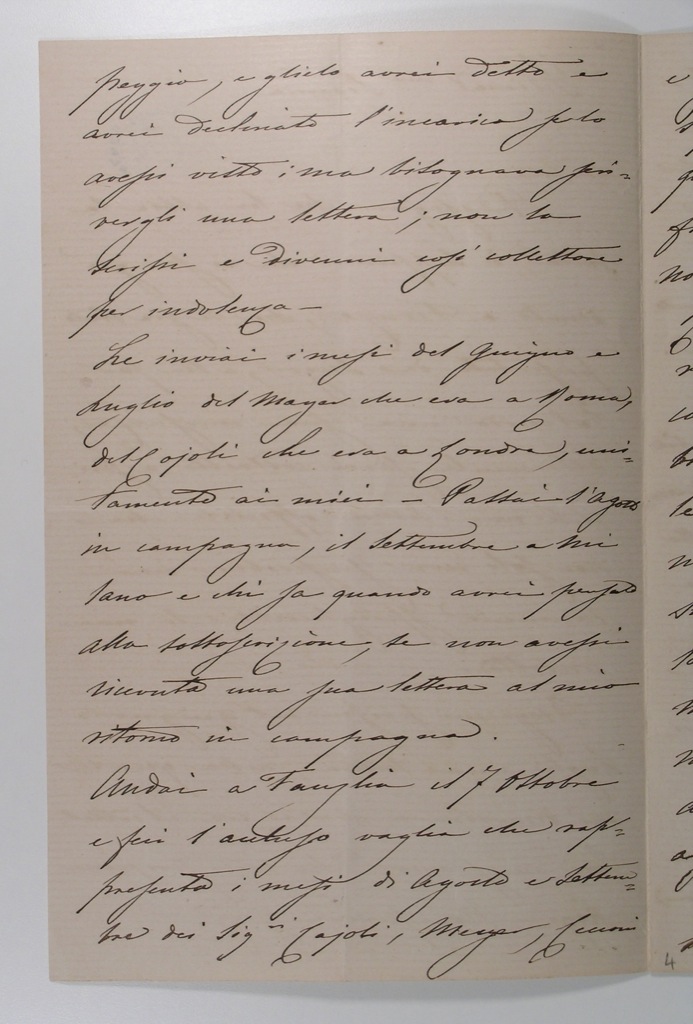 peggio, e glielo avrei detto e
avrei declinato l'incarico se lo
avessi visto; ma bisognava scri=
vergli una lettera; non la
scrissi e divenni così collettore
per indolenza —
Le inviai i mesi del Giugno e
Luglio del Mayer che era a Roma,
del Cajoli che era a Londra, uni=
tamente ai miei — Passai l'Agosto
in campagna, il Settembre a Mi
lano e chi sa quando avrei pensato
alla sottoscrizione, se non avessi
ricevuta una sua lettera al mio
ritorno in campagna.
Andai a Fauglia il 7 Ottobre
e feci l'accluso vaglia che rap=
presenta i mesi di Agosto e Settem=
bre dei Sig.ri Cajoli, Mayer, Cecconi
4